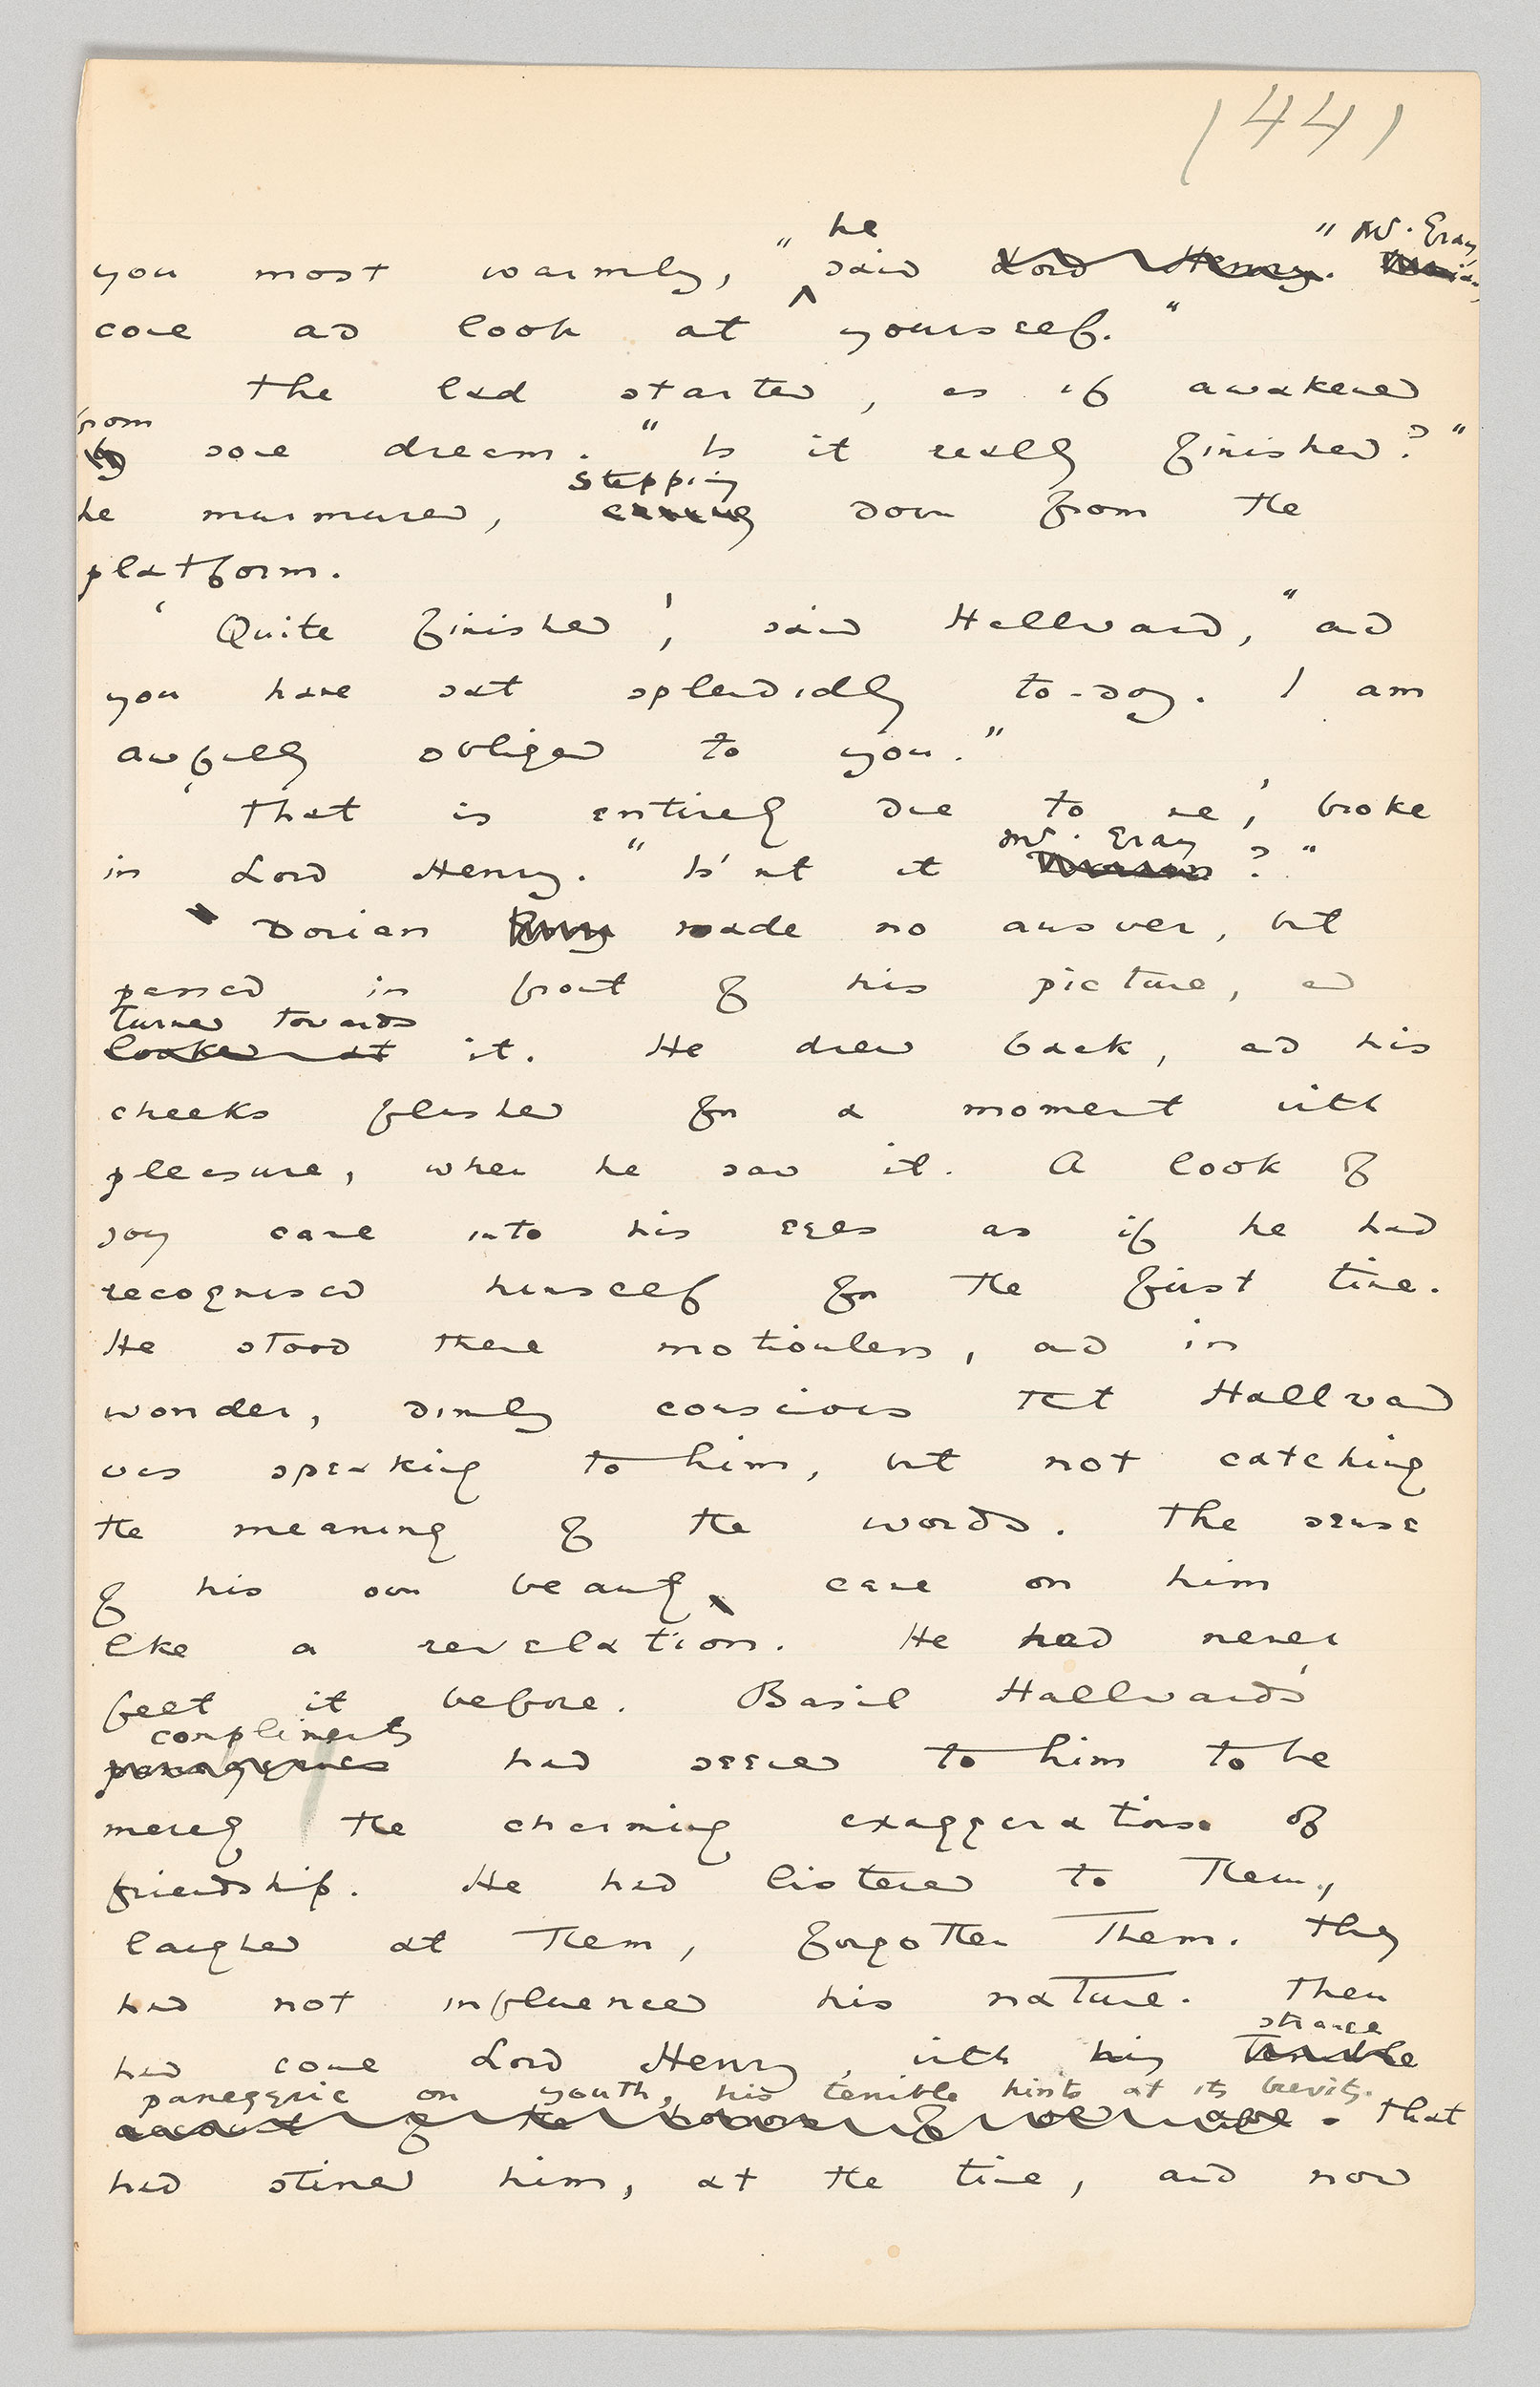 (44)
he " Mr. Gray,
you most warmly," said Lord Henry. Dorian,
come and look at yourself."
The lad started, as if awakened
from
by some dream. "Is it really finished?"
stepping
he murmured, coming down from the
platform.
'Quite finished', said Hallward, "and
you have sat splendidly to-day. I am
awfully obliged to you."
'That is entirely due to me,' broke
Mr. Gray
in Lord Henry. "Is'nt it Dorian?"
Dorian made no answer, but
passed in front of his picture, and
turned towards
looked at it. He drew back, and his
cheeks flushed for a moment with
pleasure, when he saw it. A look of
joy came into his eyes as if he had
recognised himself for the first time.
He stood there motionless, and in
wonder, dimly conscious that Hallward
was speaking to him, but not catching
the meaning of the words. The sense
of his own beauty came on him
like a revelation. He had never
felt it before. Basil Hallward's
compliments
panegyrics had seemed to him to be
merely the charming exaggerations of
friendship. He had listened to them,
laughed at them, forgotten them. They
had not influenced his nature. Then
strange
had come Lord Henry, with his terrible
panegyric on youth, his terrible hints at its brevity.
of the of . That
had stirred him, at the time, and now